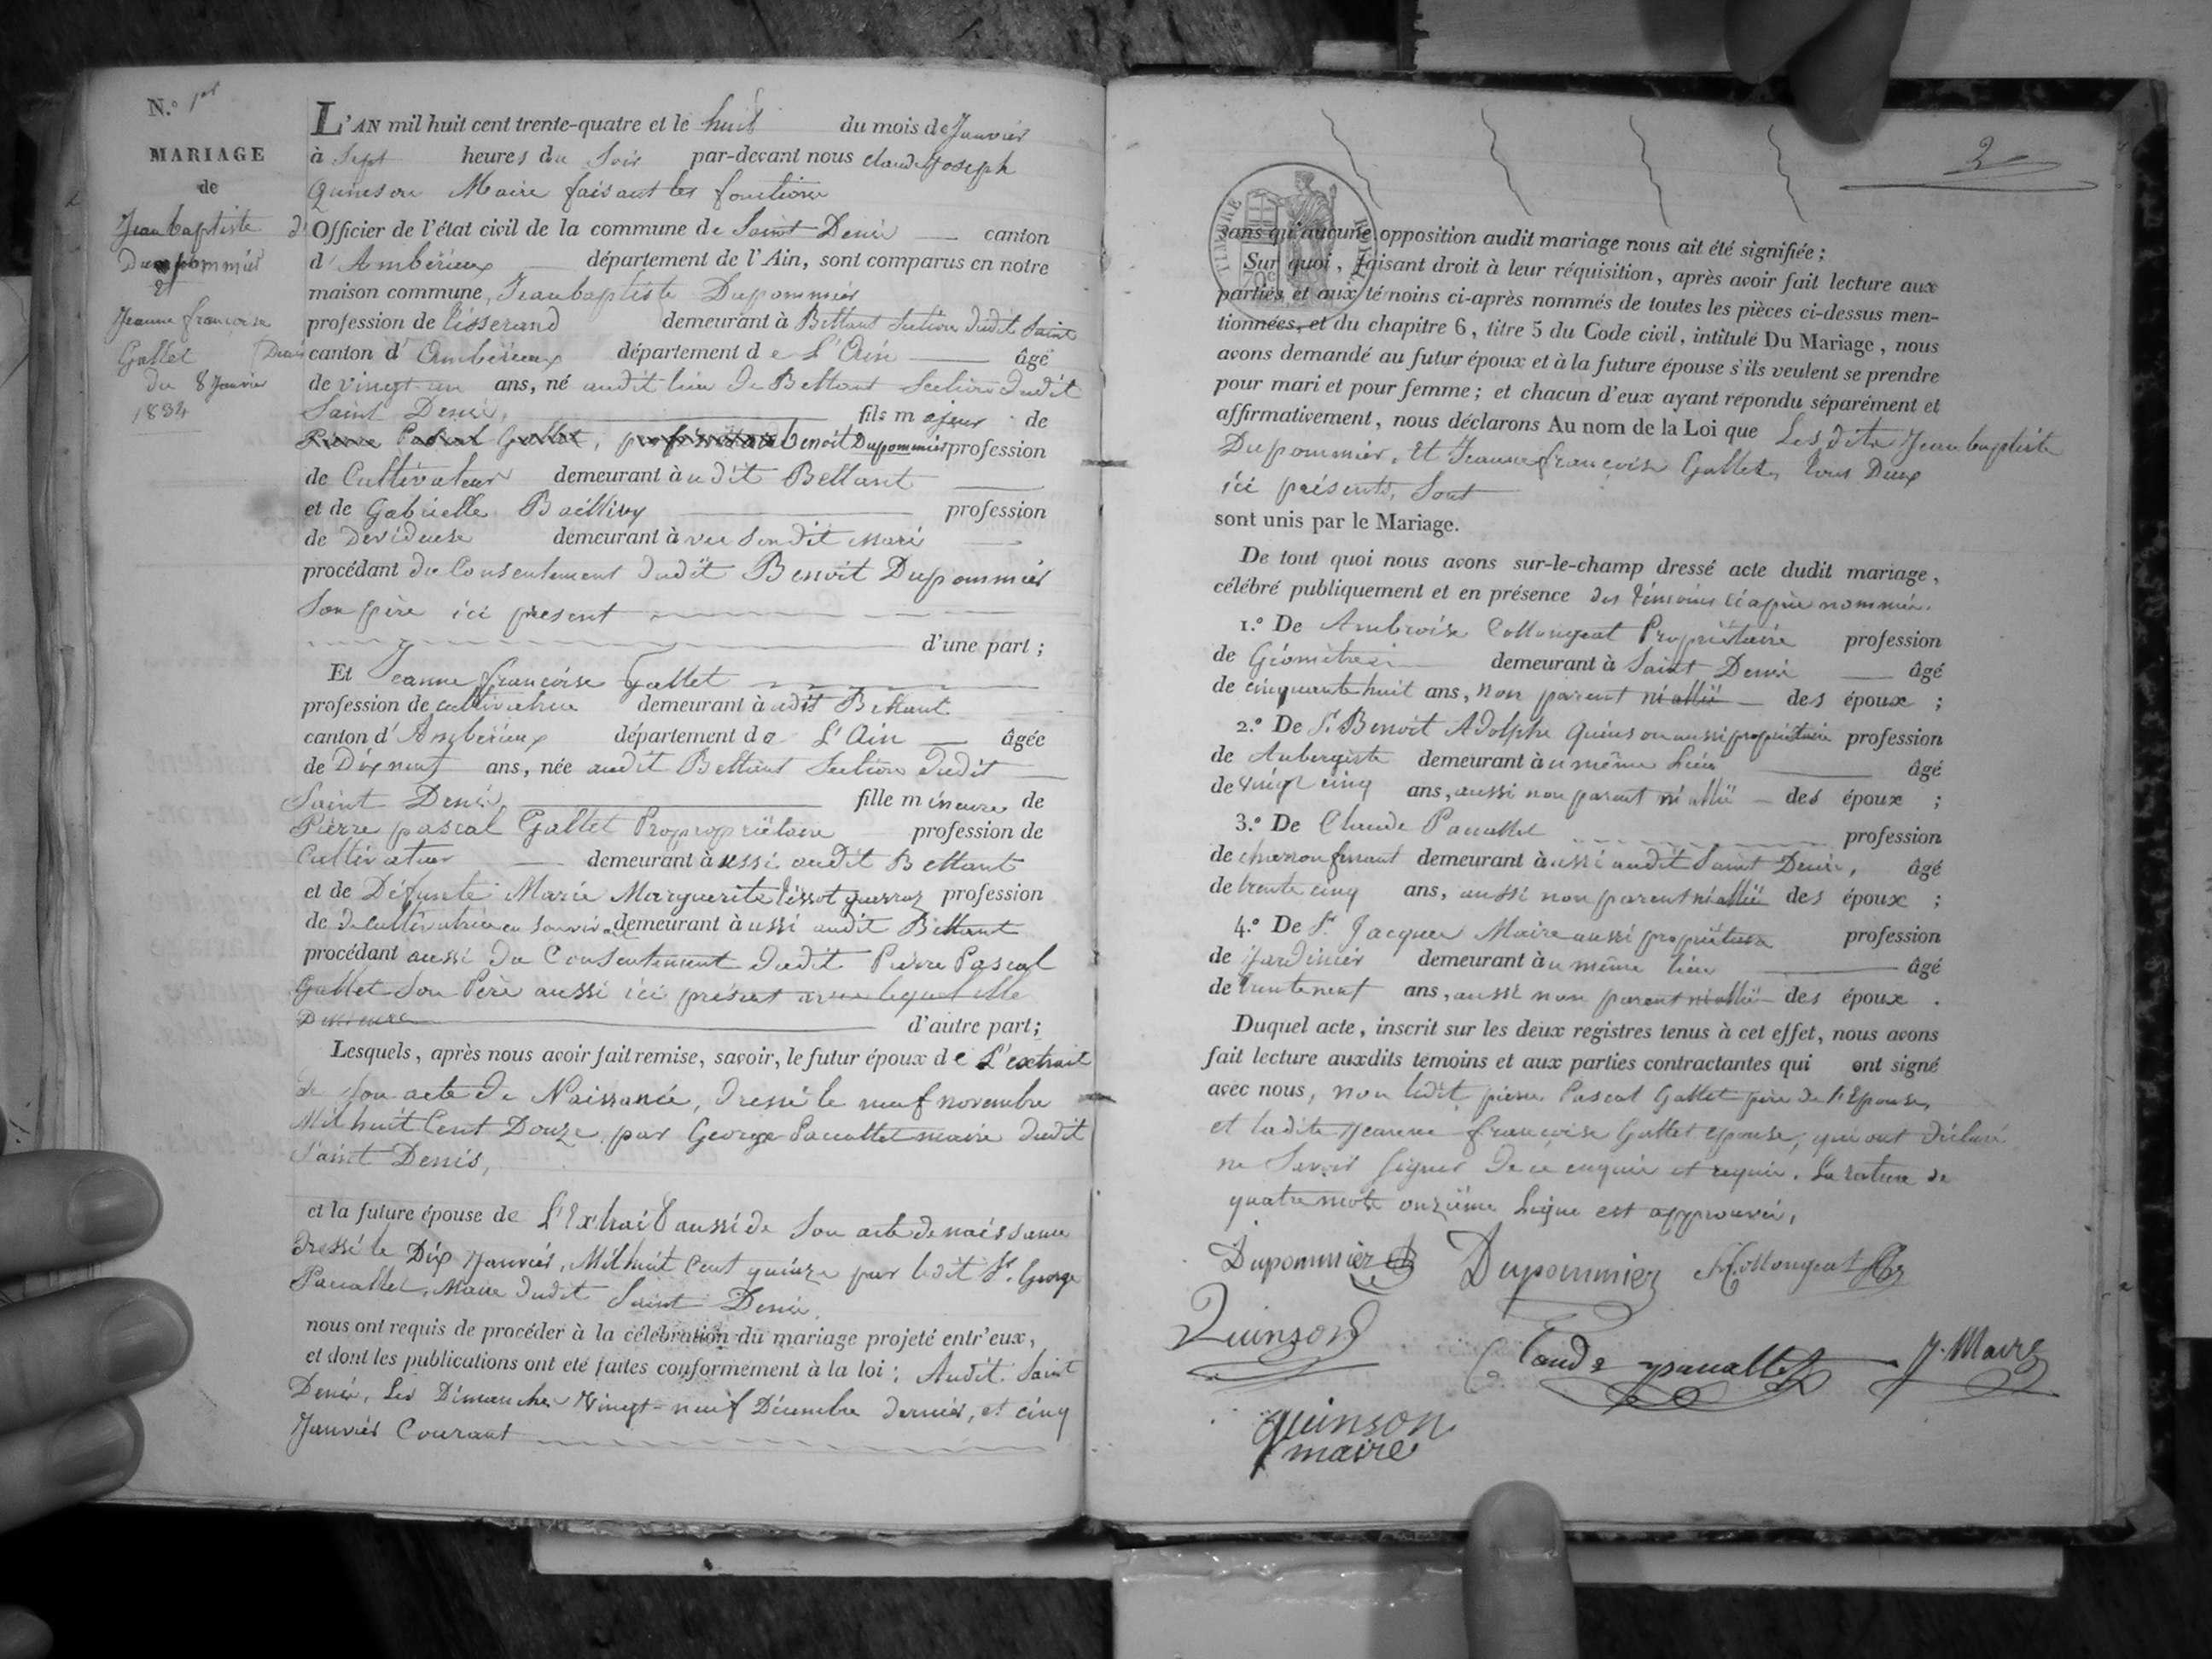 N.º 1er
MARIAGE
de
Jean baptiste
Dupommier
et
Jeanne françoise
Gallet
du 8 Janvier
1834
L'AN mil huit cent trente-quatre et le huit du mois de Janvier
à Sept heures du Soir par-devant nous Claude Joseph
Quinson Maire faisant les fonctions
d' Officier de l'état civil de la commune de Saint Denis canton
d'Ambérieux département de l'Ain, sont comparus en notre
maison commune, Jean baptiste Dupommier
profession de tisserand demeurant à Bettant Section dudit Saint
Denis canton d'Ambérieux département de L'Ain âgé
de vingt un ans, né audit lieu de Bettant Section dudit
Saint Denis, fils majeur de
Pierre Pascal Gallet, propriétaire benoit Dupommier profession
de Cultivateur demeurant audit Bettant
et de Gabrielle Baillivy profession
de Devideuse demeurant avec Sondit mari
procédant du Consentement dudit Benoit Dupommier
Son père ici présent
d'une part ;
Et Jeanne françoise Gallet
profession de cultivatrice demeurant audit Bettant
canton d'Ambérieux département de L'Ain âgée
de Dix neuf ans, née audit Bettant Section dudit
Saint Denis, fille mineure de
Pierre pascal Gallet Propropriétaire profession de
Cultivateur demeurant aussi audit Bettant
et de Défunte Marie Marguerite tissot profession
de de cultivatrice en Son vivant demeurant aussi audit Bettant
procédant aussi du Consentement dudit Pierre Pascal
Gallet Son Père aussi ici présent avec lequel elle
Demeure d'autre part ;
Lesquels, après nous avoir fait remise, savoir, le futur époux de L'extrait
de Son acte de Naissance, dressé le neuf novembre
Mil huit Cent Douze, par George Pauallet maire dudit
Saint Denis,
et la future épouse de L'Extrait aussi de Son acte de naissance
dressé le Dix Janvier, Mil huit Cent quinze par ledit Sr. George
Pauallet, Maire dudit Saint Denis,
nous ont requis de procéder à la célébration du mariage projeté entr'eux,
et dont les publications ont été faites conformément à la loi : Audit Saint
Denis, Les Dimanches vingt-neuf Décembre dernier, et cinq
Janvier Courant
2
TIMBRE ROYAL
70c
sans qu'aucune opposition audit mariage nous ait été signifiée ;
Sur quoi, faisant droit à leur réquisition, après avoir fait lecture aux
parties et aux témoins ci-après nommés de toutes les pièces ci-dessus men-
tionnées, et du chapitre 6, titre 5 du Code civil, intitulé Du Mariage, nous
avons demandé au futur époux et à la future épouse s'ils veulent se prendre
pour mari et pour femme ; et chacun d'eux ayant répondu séparément et
affirmativement, nous déclarons Au nom de la Loi que Lesdits Jean baptiste
Dupommier, Et Jeanne françoise Gallet, tous Deux
ici présents, Sont
sont unis par le Mariage.
De tout quoi nous avons sur-le-champ dressé acte dudit mariage,
célébré publiquement et en présence des témoins ci après nommés.
1.º De Ambroise Collongeat Propriétaire profession
de Géomètre demeurant à Saint Denis âgé
de cinquante huit ans, non parent ni allié des époux ;
2.º De Sr. Benoit Adolphe Quinson aussi propriétaire profession
de Aubergiste demeurant au même Lieu âgé
de vingt cinq ans, aussi non parent ni allié des époux ;
3.º De Claude Pauallet profession
de demeurant aussi audit Saint Denis, âgé
de trente cinq ans, aussi non parent ni allié des époux ;
4.º De Sr. Jacques Maire aussi propriétaire profession
de jardinier demeurant au même lieu âgé
de trente neuf ans, aussi non parent ni allié des époux.
Duquel acte, inscrit sur les deux registres tenus à cet effet, nous avons
fait lecture auxdits témoins et aux parties contractantes qui ont signé
avec nous, non ledit pierre Pascal Gallet père de l'Epouse,
et ladite Jeanne françoise Gallet epouse, qui ont déclaré
ne Savoir signer de ce enquis et requis. La rature de
quatre mots onzième Ligne est approuvée,
Dupommier Dupommier Collongeat
Quinson Claude pauallet J. Maire
quinson
maire